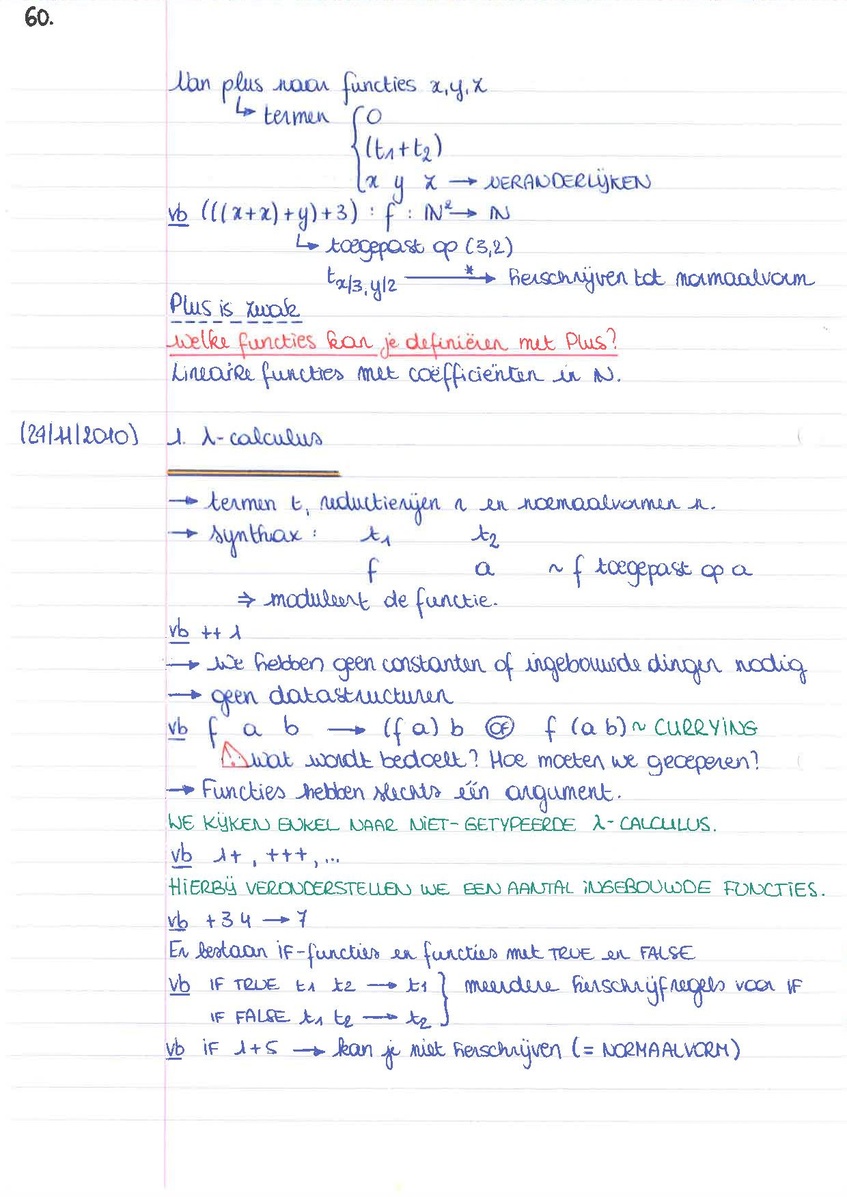 60.
Van plus naar functies x,y,z
↳ termen { 0
(t1+t2)
x y z → VERANDERLIJKEN
vb (((x+x)+y)+3) : f : ℕ² → ℕ
↳ toegepast op (3,2)
t x/3, y/2 —*→ herschrijven tot normaalvorm
Plus is zwak
Welke functies kan je definiëren met Plus?
Lineaire functies met coëfficiënten in ℕ.
(29/11/2010) 1. λ-calculus
→ termen t, reductierijen r en normaalvormen n.
→ synthax : t1 t2
f a ~ f toegepast op a
⇒ moduleert de functie.
vb ++ 1
→ We hebben geen constanten of ingebouwde dingen nodig
→ geen datastructuren
vb f a b → (f a) b OF f (a b) ~ CURRYING
⚠ Wat wordt bedoelt? Hoe moeten we groeperen?
→ Functies hebben slechts één argument.
WE KIJKEN ENKEL NAAR NIET-GETYPEERDE λ-CALCULUS.
vb 1+, +++, ...
HIERBIJ VERONDERSTELLEN WE EEN AANTAL INGEBOUWDE FUNCTIES.
vb +3 4 → 7
Er bestaan IF-functies en functies met TRUE en FALSE
vb IF TRUE t1 t2 → t1 } meerdere herschrijfregels voor IF
IF FALSE t1 t2 → t2
vb IF 1+5 → kan je niet herschrijven (= NORMAALVORM)